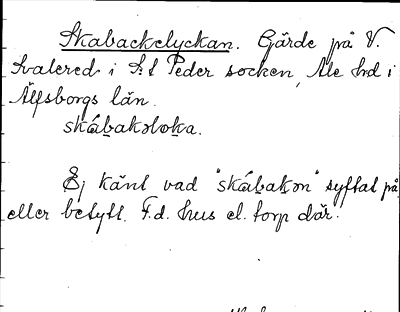 Skabackelyckan. Gärde på V.
Svalered i S:t Peder socken, Ale hd i
Älfsborgs län.
skábakəloka.
Ej känt vad "skábakən" syftat på
eller betytt. F.d. hus el. torp där.